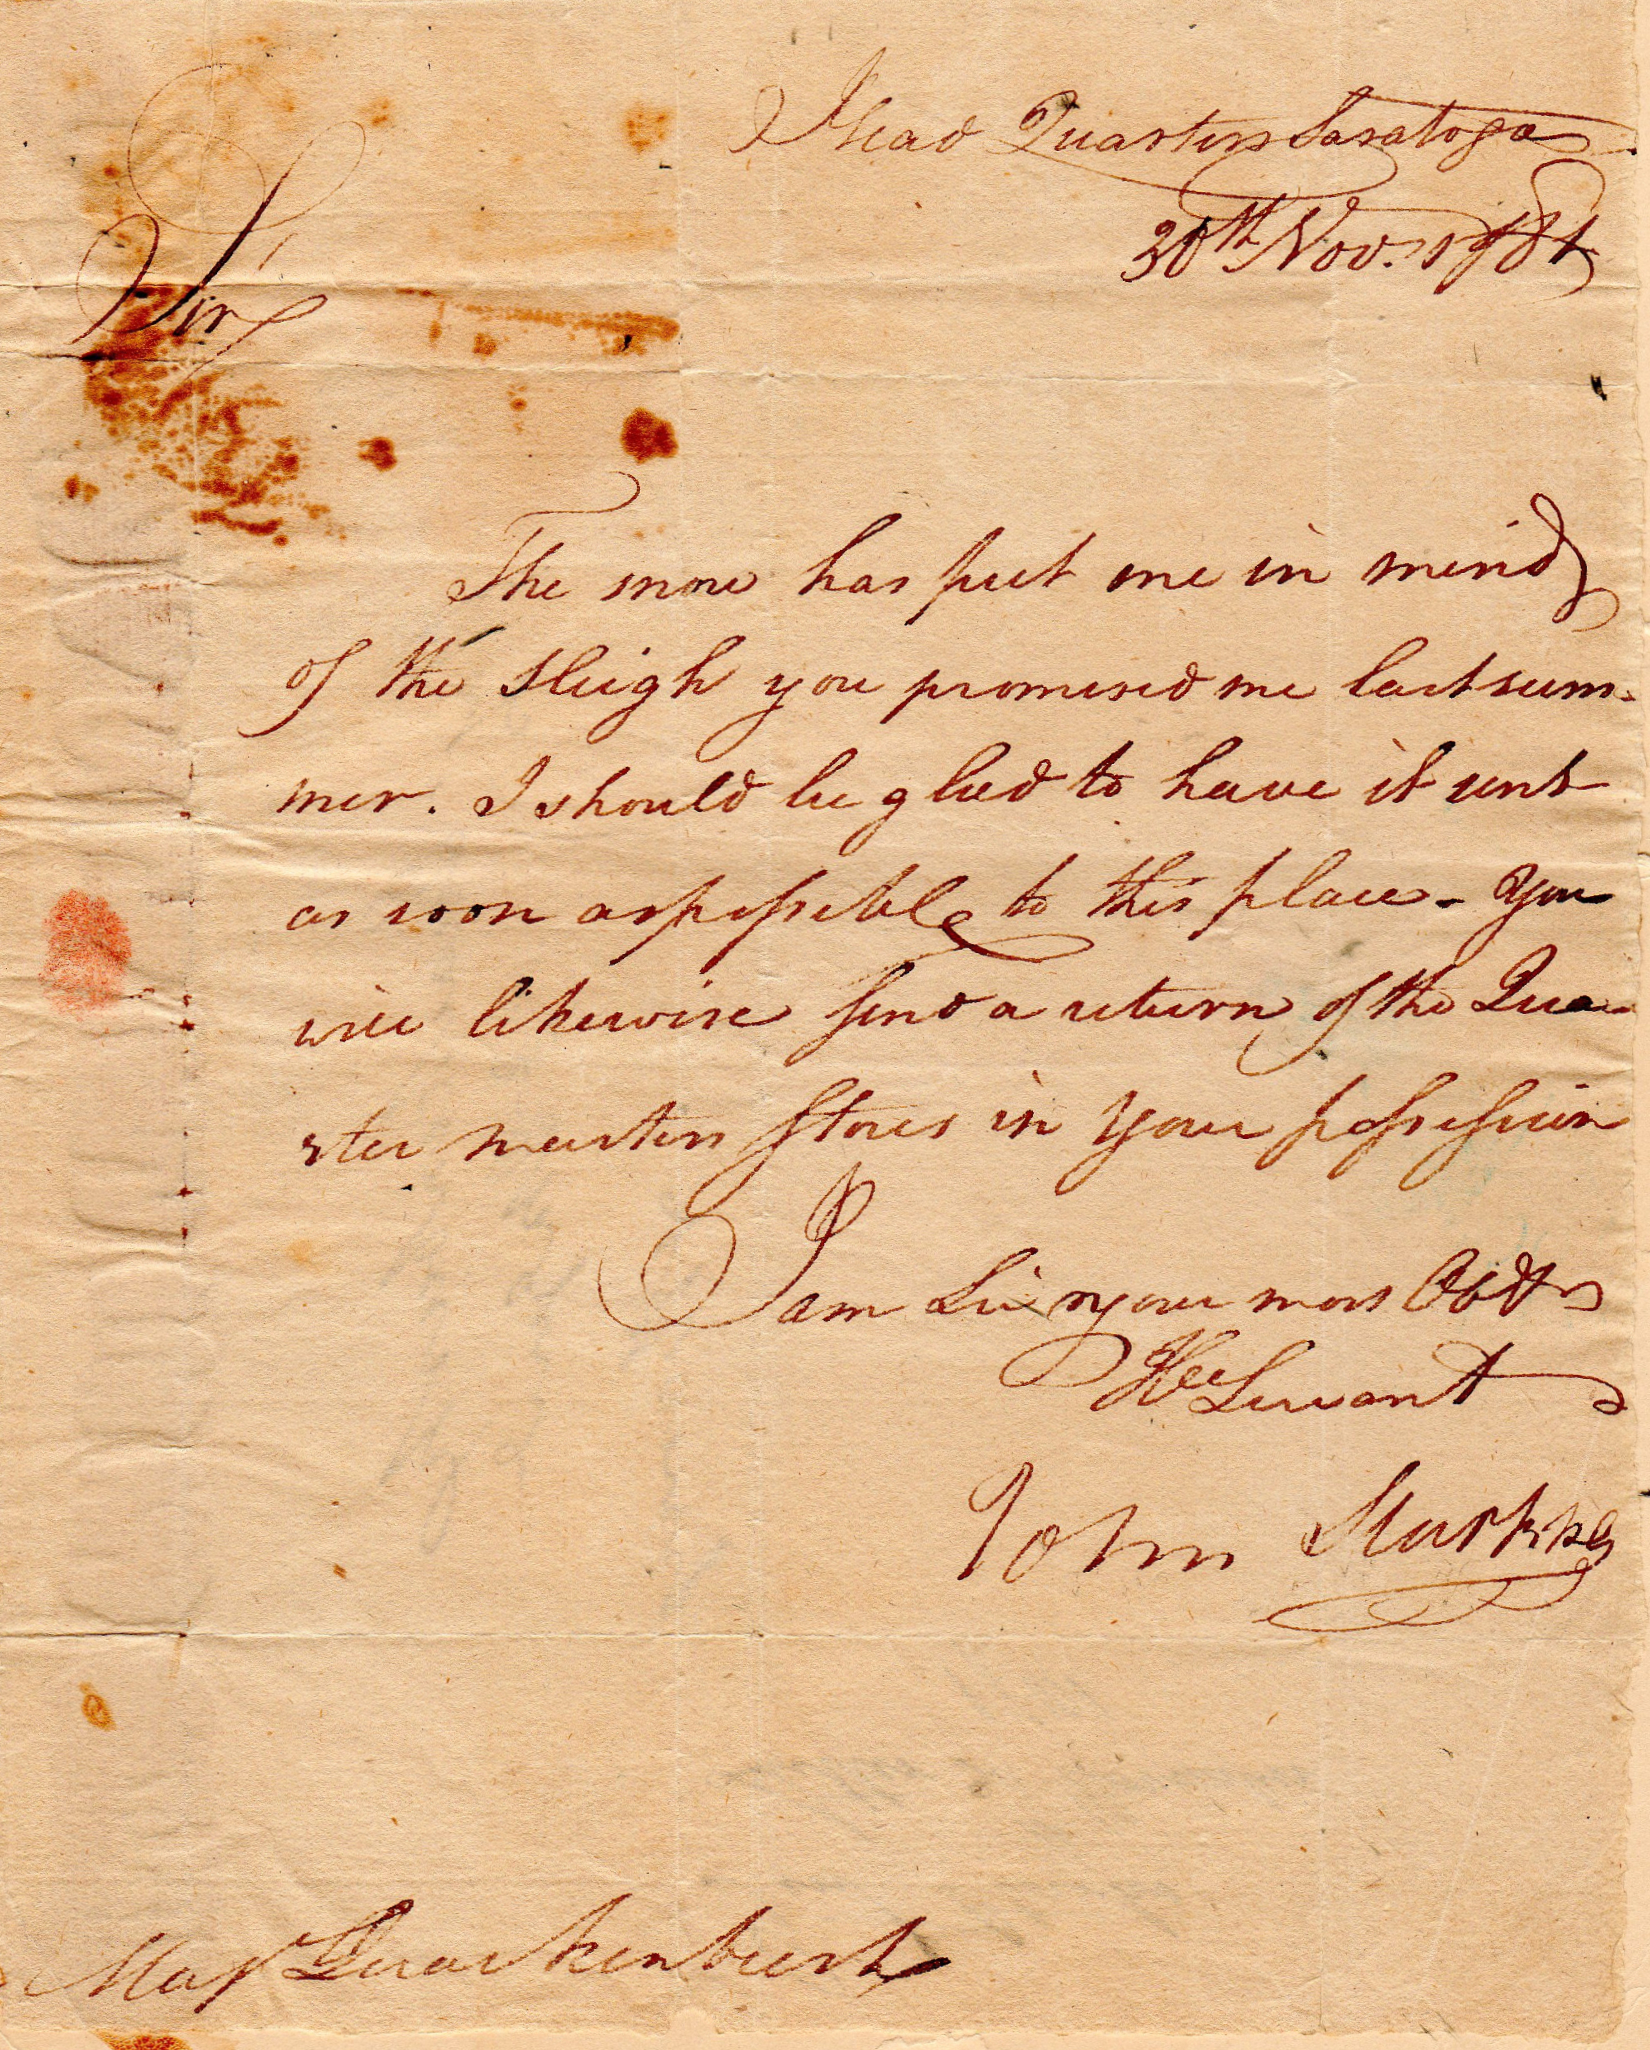 Head Quarters Saratoga
30th Nov. 1781
Sir
The snow has put me in mind
of the Sleigh you promised me last sum-
mer. I should be glad to have it sent
as soon as possible to this place - You
will likewise send a return of the Qua-
rter masters Stores in your possession
I am Sir your most Obdt
Hle Servant
John Stark
Majr Quackenbush